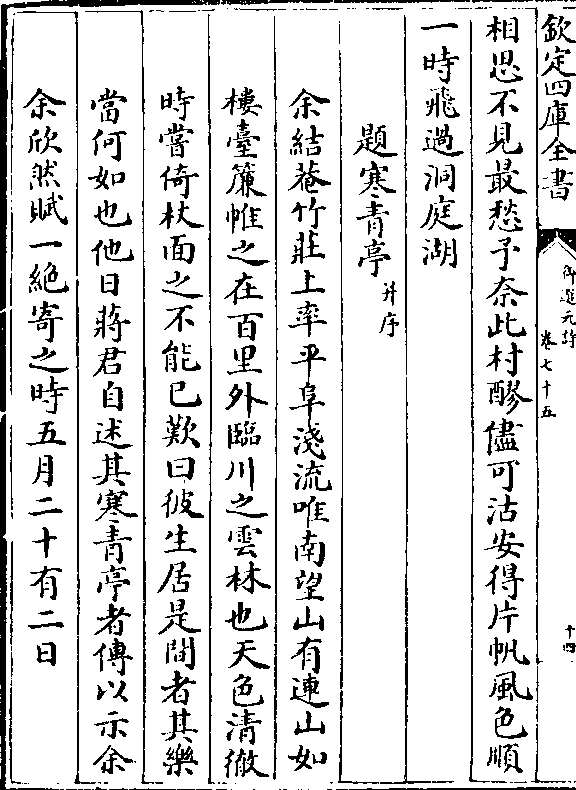 欽定四庫全書
御選元詩
卷七十五
十四
相思不見最愁予奈此村醪儘可沽安得片帆風色順
一時飛過洞庭湖
題寒青亭并序
余結菴竹莊上率平阜淺流唯南望山有連山如
樓臺簾帷之在百里外臨川之雲林也天色清徹
時嘗倚杖面之不能已歎曰彼生居是間者其樂
當何如也他日蔣君自述其寒青亭者傳以示余
余欣然賦一絶寄之時五月二十有二日